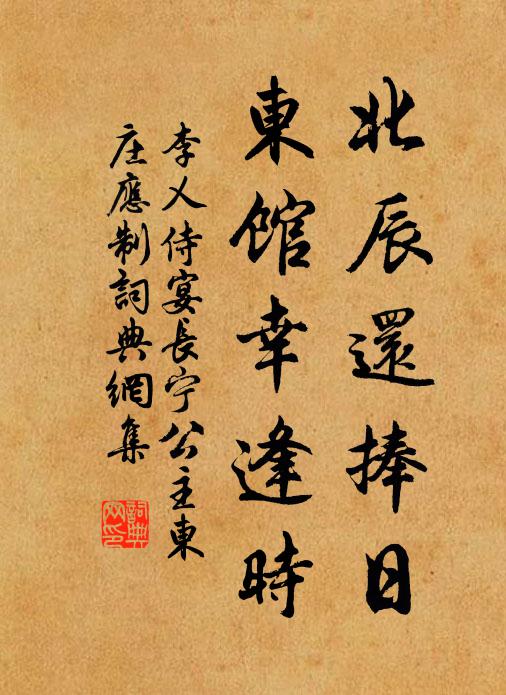 北辰還捧日
東館幸逢時
李乂侍宴長宁公主東
庄應制詞典網集
詞典
网印